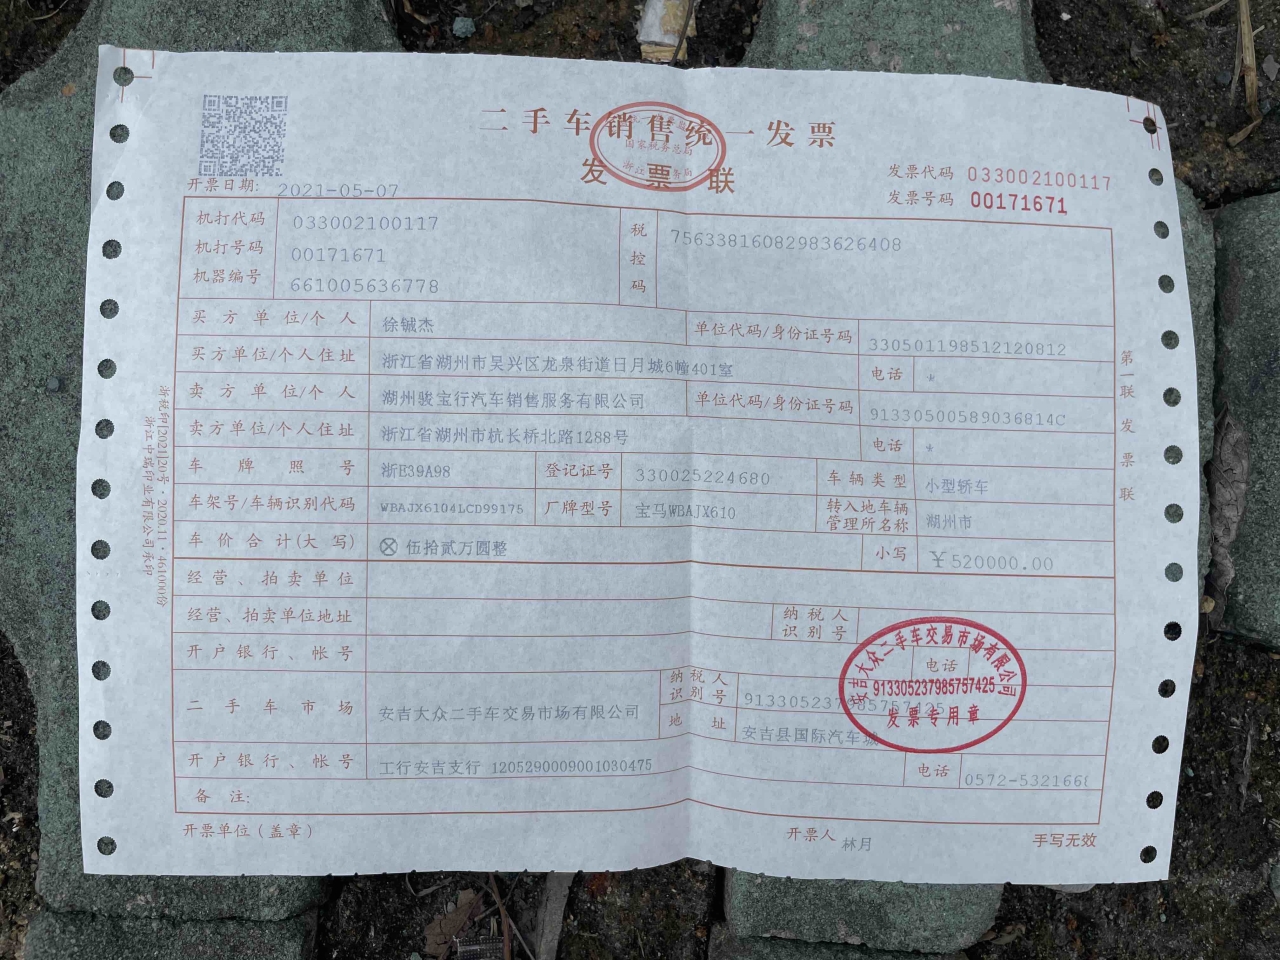 二手车销售统一发票
发票联
国家税务总局
发票代码 033002100117
发票号码 00171671
开票日期: 2021-05-07
机打代码 033002100117
机打号码 00171671
机器编号 661005636778
税控码 75633816082983626408
买方单位/个人 徐铖杰 单位代码/身份证号码 330501198512120812
买方单位/个人住址 浙江省湖州市吴兴区龙泉街道日月城6幢401室 电话 *
卖方单位/个人 湖州骏宝行汽车销售服务有限公司 单位代码/身份证号码 91330500589036814C
卖方单位/个人住址 浙江省湖州市杭长桥北路1288号 电话 *
车牌照号 浙E39A98 登记证号 330025224680 车辆类型 小型轿车
车架号/车辆识别代码 WBAJX6104LCD99175 厂牌型号 宝马WBAJX610 转入地车辆管理所名称 湖州市
车价合计(大写) ⊗ 伍拾贰万圆整 小写 ￥520000.00
经营、拍卖单位
经营、拍卖单位地址 纳税人识别号
开户银行、帐号 电话
二手车市场 安吉大众二手车交易市场有限公司 纳税人识别号 913305237985757425
地址 安吉县国际汽车城
开户银行、帐号 工行安吉支行 1205290009001030475 电话 0572-5321668
备注:
开票单位(盖章) 开票人 林月 手写无效
安吉大众二手车交易市场有限公司
913305237985757425
发票专用章
第一联 发票联
浙税印[2021]20号·2020.11·461000份